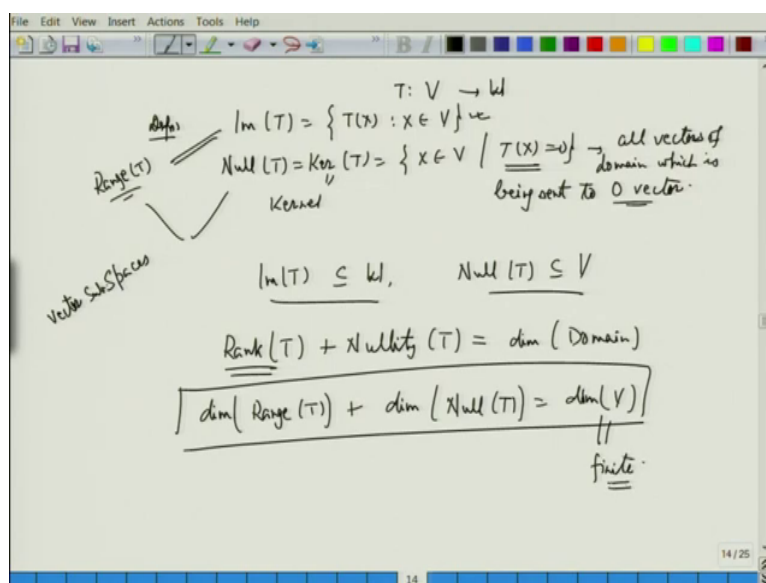 File Edit View Insert Actions Tools Help
T: V → W
Defn Im (T) = { T(x) : x ∈ V }
Range (T)
Null (T) = Ker (T) = { x ∈ V / T(x) = 0 } → all vectors of
domain which is
being sent to 0 vector.
Kernel
Vector SubSpaces
Im(T) ⊆ W, Null (T) ⊆ V
Rank (T) + Nullity (T) = dim (Domain)
dim( Range (T)) + dim ( Null (T)) = dim(V)
finite.
14 / 25
14